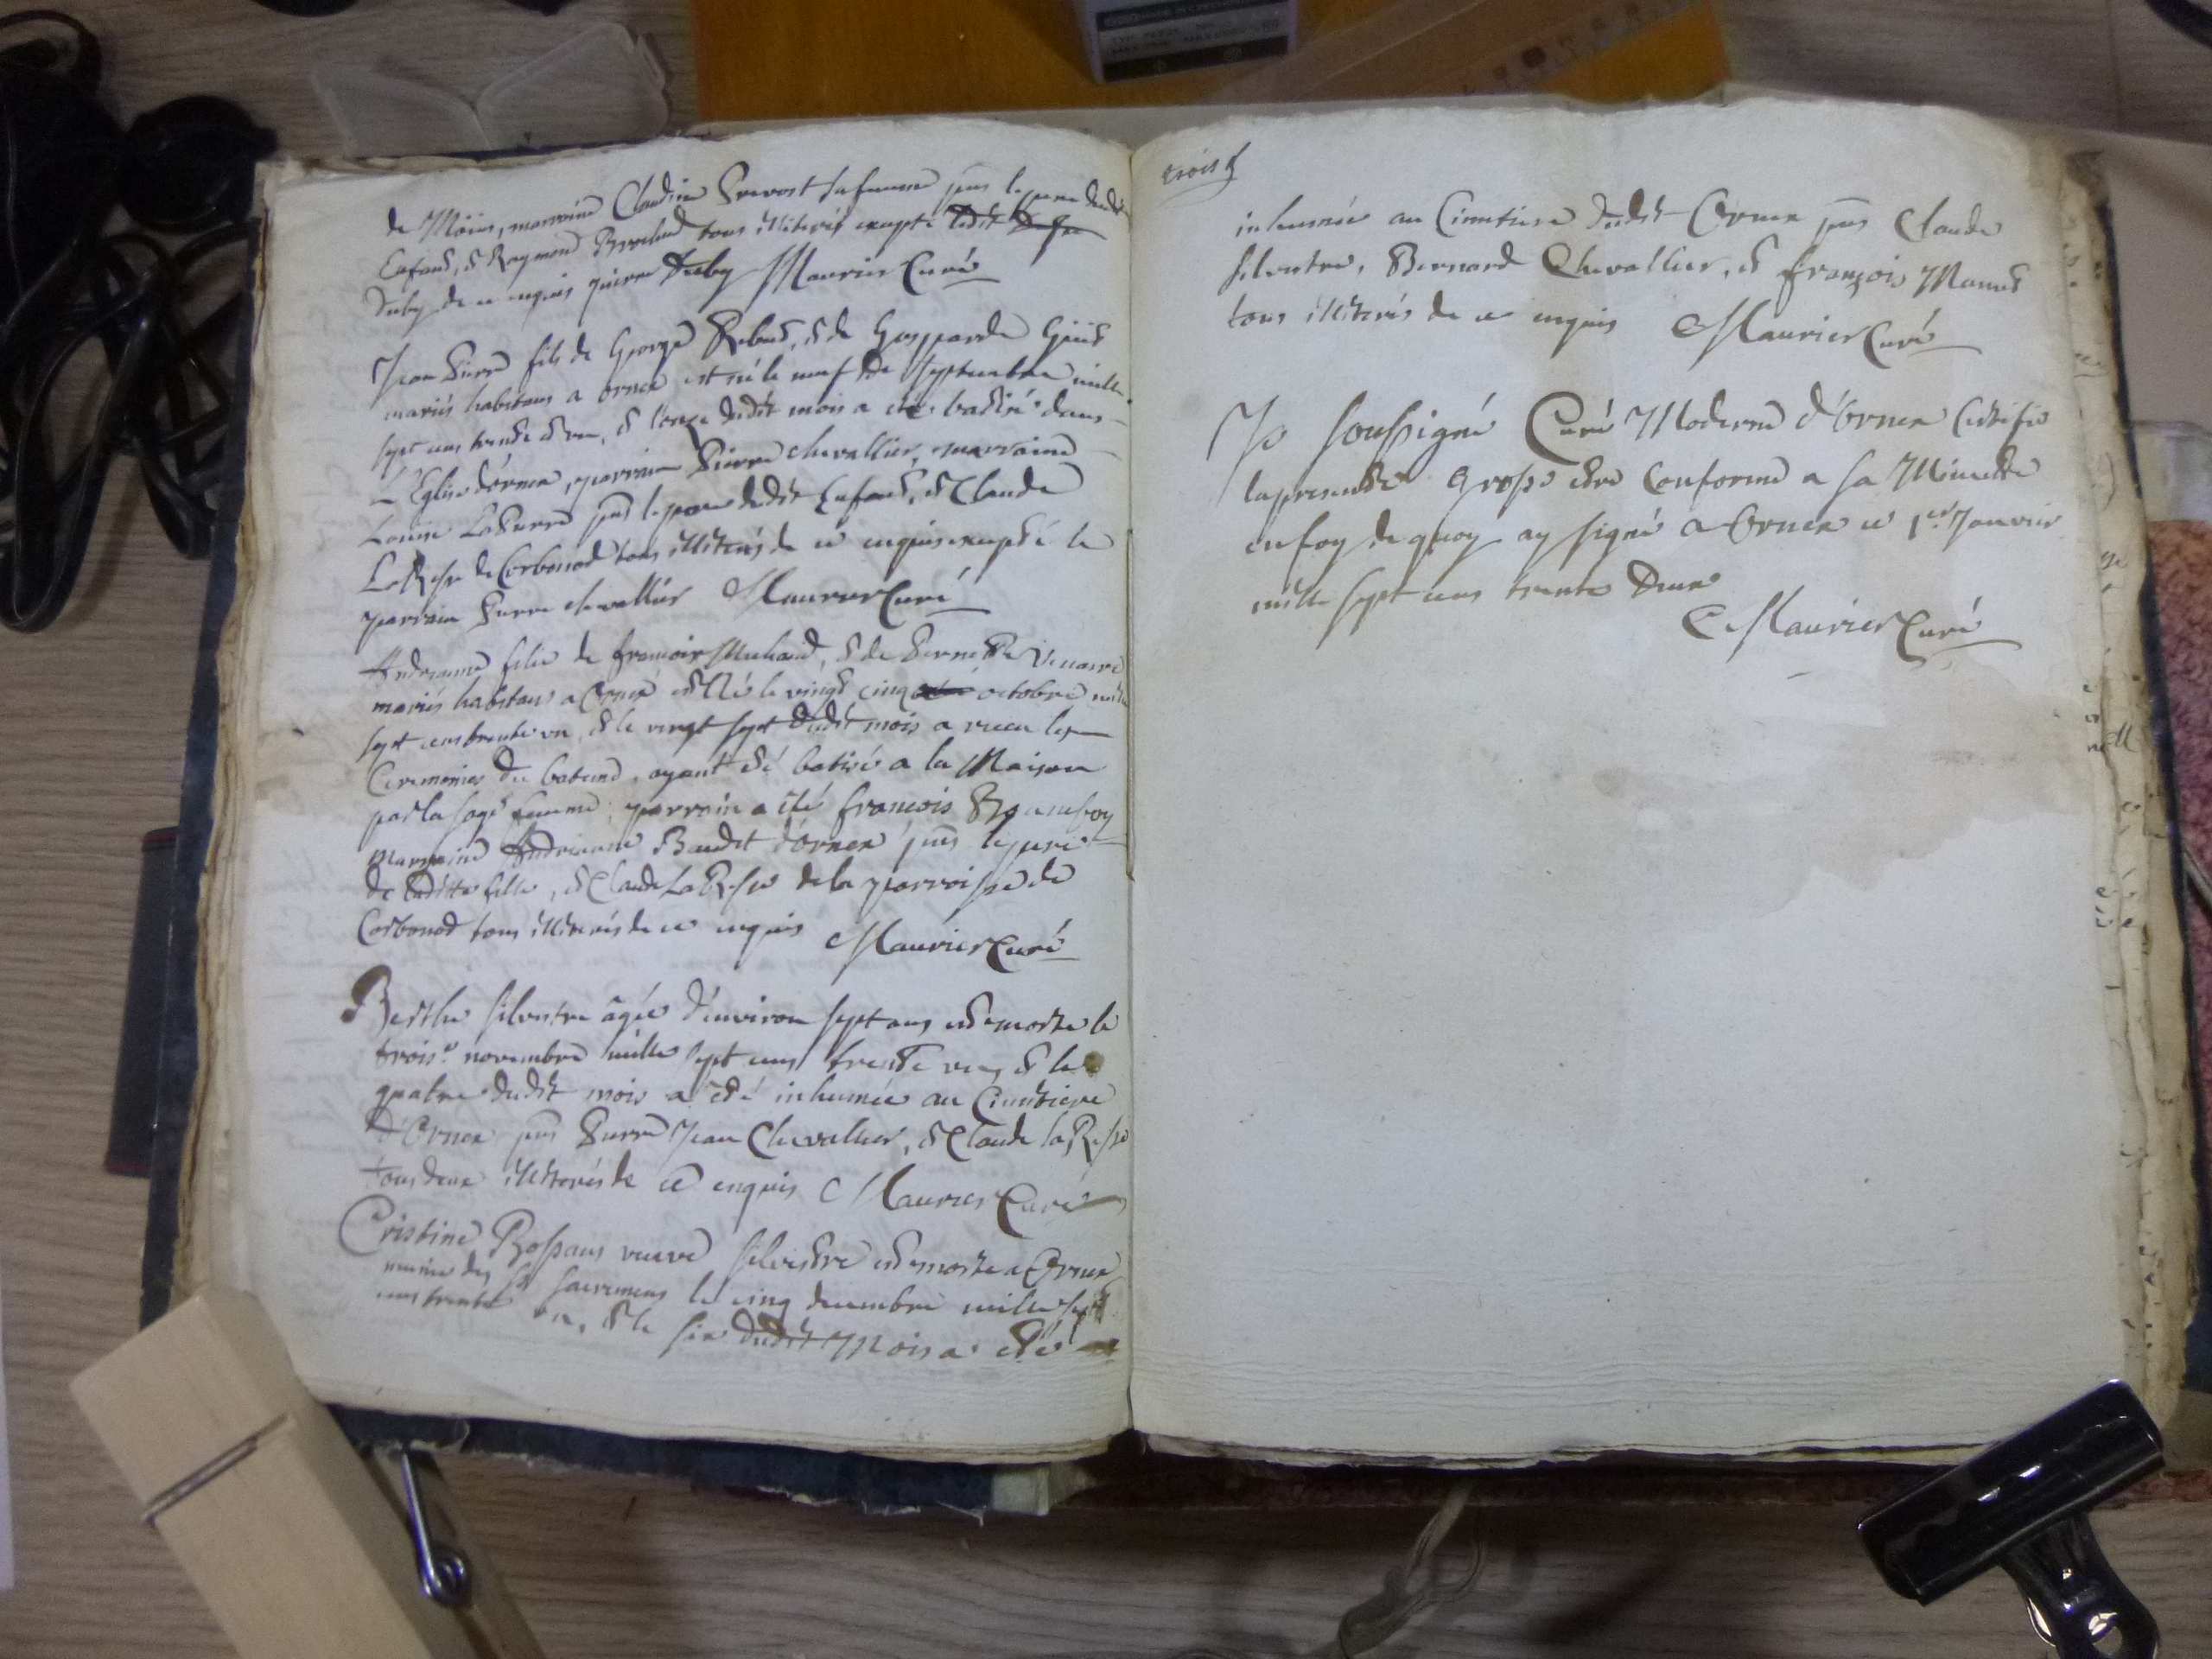 de Moiins, marraine Claudine Prevost sa femme pns le pere dudit
Enfant, & Raymond tous illiterés exepté ledit
Duby de ce enquis pierre Duby Maurier Curé
Jean Pierre fils de George Rebut, & de Gasparde
mariés habitans a ornex est né le neuf de septembre mille
sept cens trente & un, & l'onze dudit mois a été batisé dans
L'Eglise dornex, parrain Pierre chevallier, marraine
Louise LaPierre pns le pere dudit Enfant, & Claude
LaRasse de Corbonod tous illiterés de ce enquis exepté le
parrain Pierre chevallier Maurier Curé
Andreanne filie de francois Michaud, & de Pernette
mariés habitans a Ornex est Née le vingt cinq octobre mille
sept cens trente un, & le vingt sept dudit mois a receu les
Ceremonies du bateme, ayant été batisée a la Maison
par la sage femme, parrain a été francois
marraine Andreanne Baudet d'ornex pns le pere
de ladite fille, & Claude LaRasse de la parroisse de
Corbonod tous illiterés de ce enquis Maurier Curé
Berthe silvestre âgée d'environ sept ans est morte le
trois.e novembre mille sept cens trente un, & le
quatre dudit mois a été inhumée au Cimetiere
d'Ornex pns Pierre Jean Chevallier, & Claude la Rasse
tous deux illiterés de ce enquis Maurier Curé
Cristine Rossans veuve silvestre est morte a Ornex
munie des sts sacremens le cinq decembre mille sept
cens trente un, & le six dudit Mois a été
trois
inhumée au Cimetiere dudit Ornex pns Claude
silvestre, Bernard Chevallier, & françois
tous illiterés de ce enquis Maurier Curé
Je soussigné Curé Moderne d'Ornex Certifie
la presente Grosse etre Conforme a sa Minutte
en foy de quoy ay signé a Ornex ce 1er Janvier
mille sept cens trente Deux
Maurier Curé